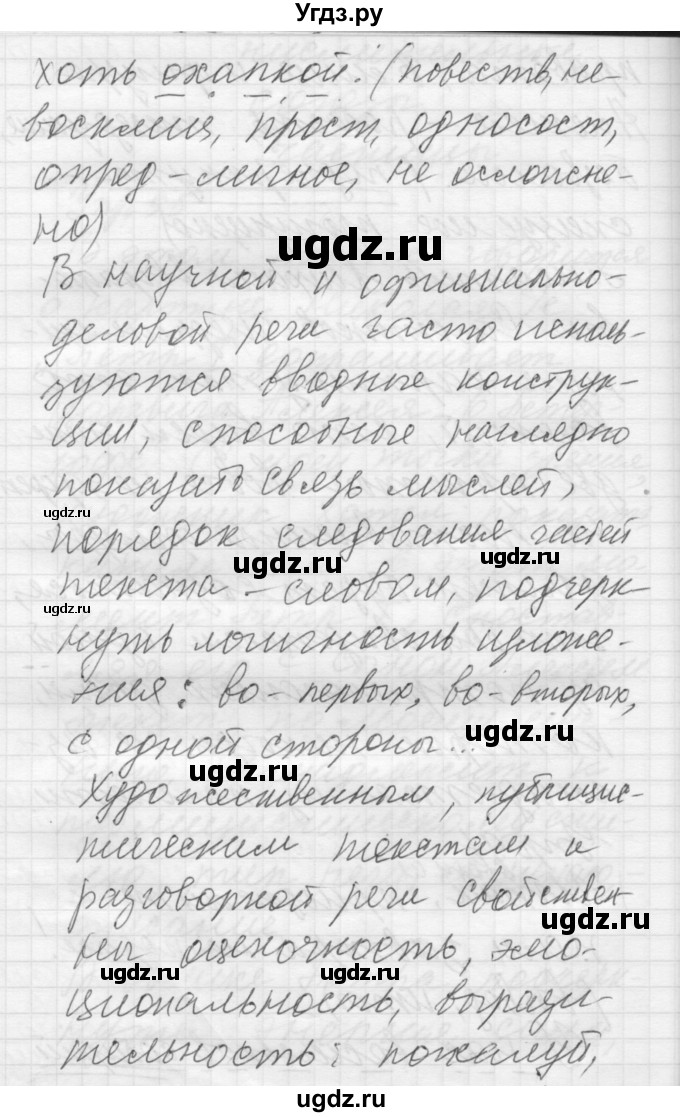 Угдз.ру
хоть охапкой. (повеств, не-
восклиц, прост, односост,
опред-личное, не осложне-
но)
ugdz.ru
В научной и официально-
деловой речи часто исполь-
зуются вводные конструк-
ции, способные наглядно
показать связь мыслей,
ugdz.ru
порядок следования частей
ugdz.ru
ugdz.ru
текста - словом, подчерк-
ugdz.ru
нуть логичность изложе-
ния: во-первых, во-вторых,
ugdz.ru
с одной стороны...
ugdz.ru
Художественным, публицис-
тическим текстам и
разговорной речи свойствен-
ugdz.ru
ны оценочность, эмо-
ugdz.ru
ugdz.ru
циональность, вырази-
тельность: пожалуй,
ugdz.ru
ugdz.ru